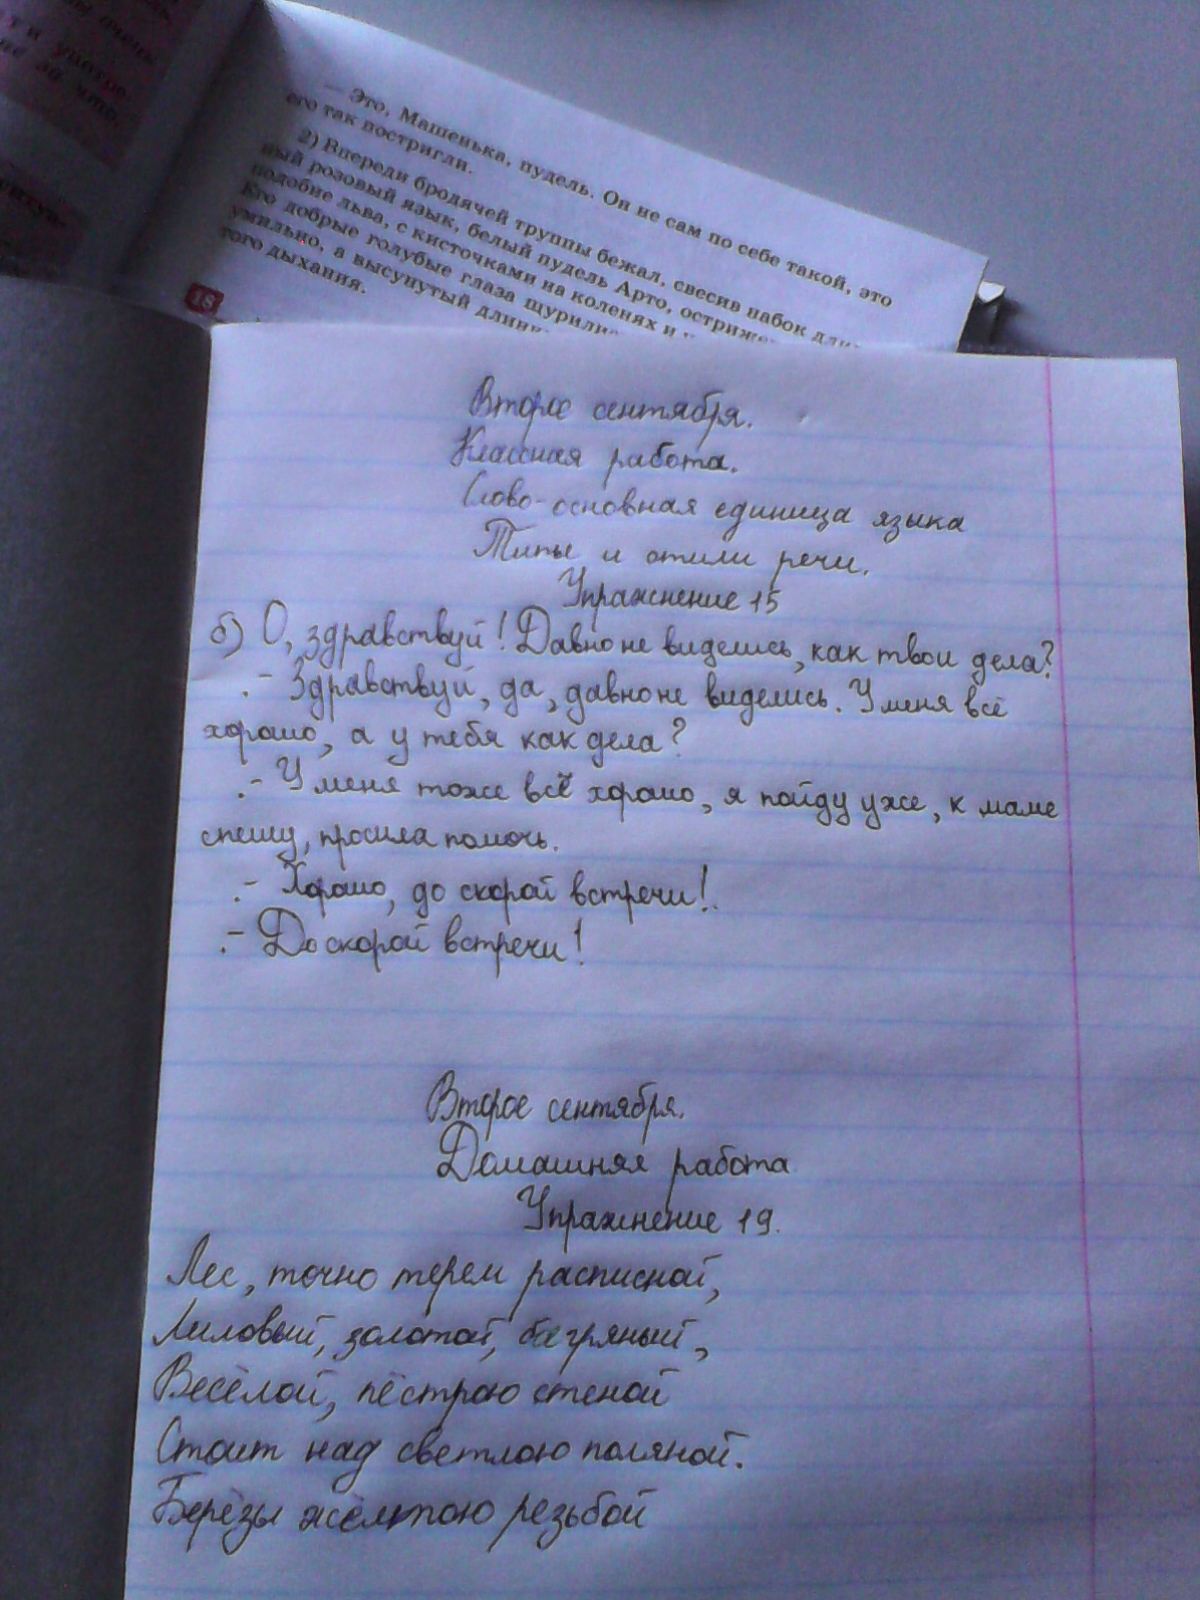 — Это, Машенька, пудель. Он не сам по себе такой, это
его так постригли.
2) Впереди бродячей труппы бежал, свесив набок
ный розовый язык, белый пудель Арто,
подобие льва, с кисточками на коленях и
Его добрые голубые глаза
умильно, а высунутый
того дыхания.
18
Второе сентября.
Классная работа.
Слово-основная единица языка
Типы и стили речи.
Упражнение 15
б) О, здравствуй! Давно не виделись, как твои дела?
- Здравствуй, да, давно не виделись. У меня всё
хорошо, а у тебя как дела?
- У меня тоже всё хорошо, я пойду уже, к маме
спешу, просила помочь.
- Хорошо, до скорой встречи!
- До скорой встречи!
Второе сентября.
Домашняя работа
Упражнение 19.
Лес, точно терем расписной,
Лиловый, золотой, багряный,
Весёлой, пёстрою стеной
Стоит над светлою поляной.
Берёзы жёлтою резьбой